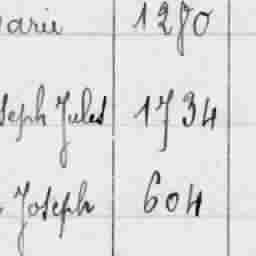 arie 1270
seph Jules 1734
Joseph 604